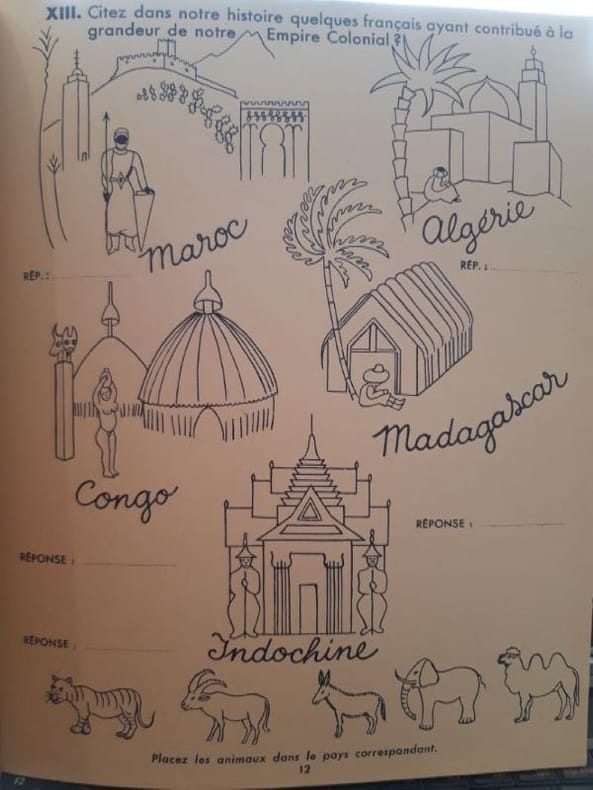 XIII. Citez dans notre histoire quelques français ayant contribué à la
grandeur de notre Empire Colonial ?
Maroc
Algérie
RÉP. :
RÉP. :
Madagascar
Congo
RÉPONSE :
RÉPONSE :
RÉPONSE :
Indochine
Placez les animaux dans le pays correspondant.
12
F2